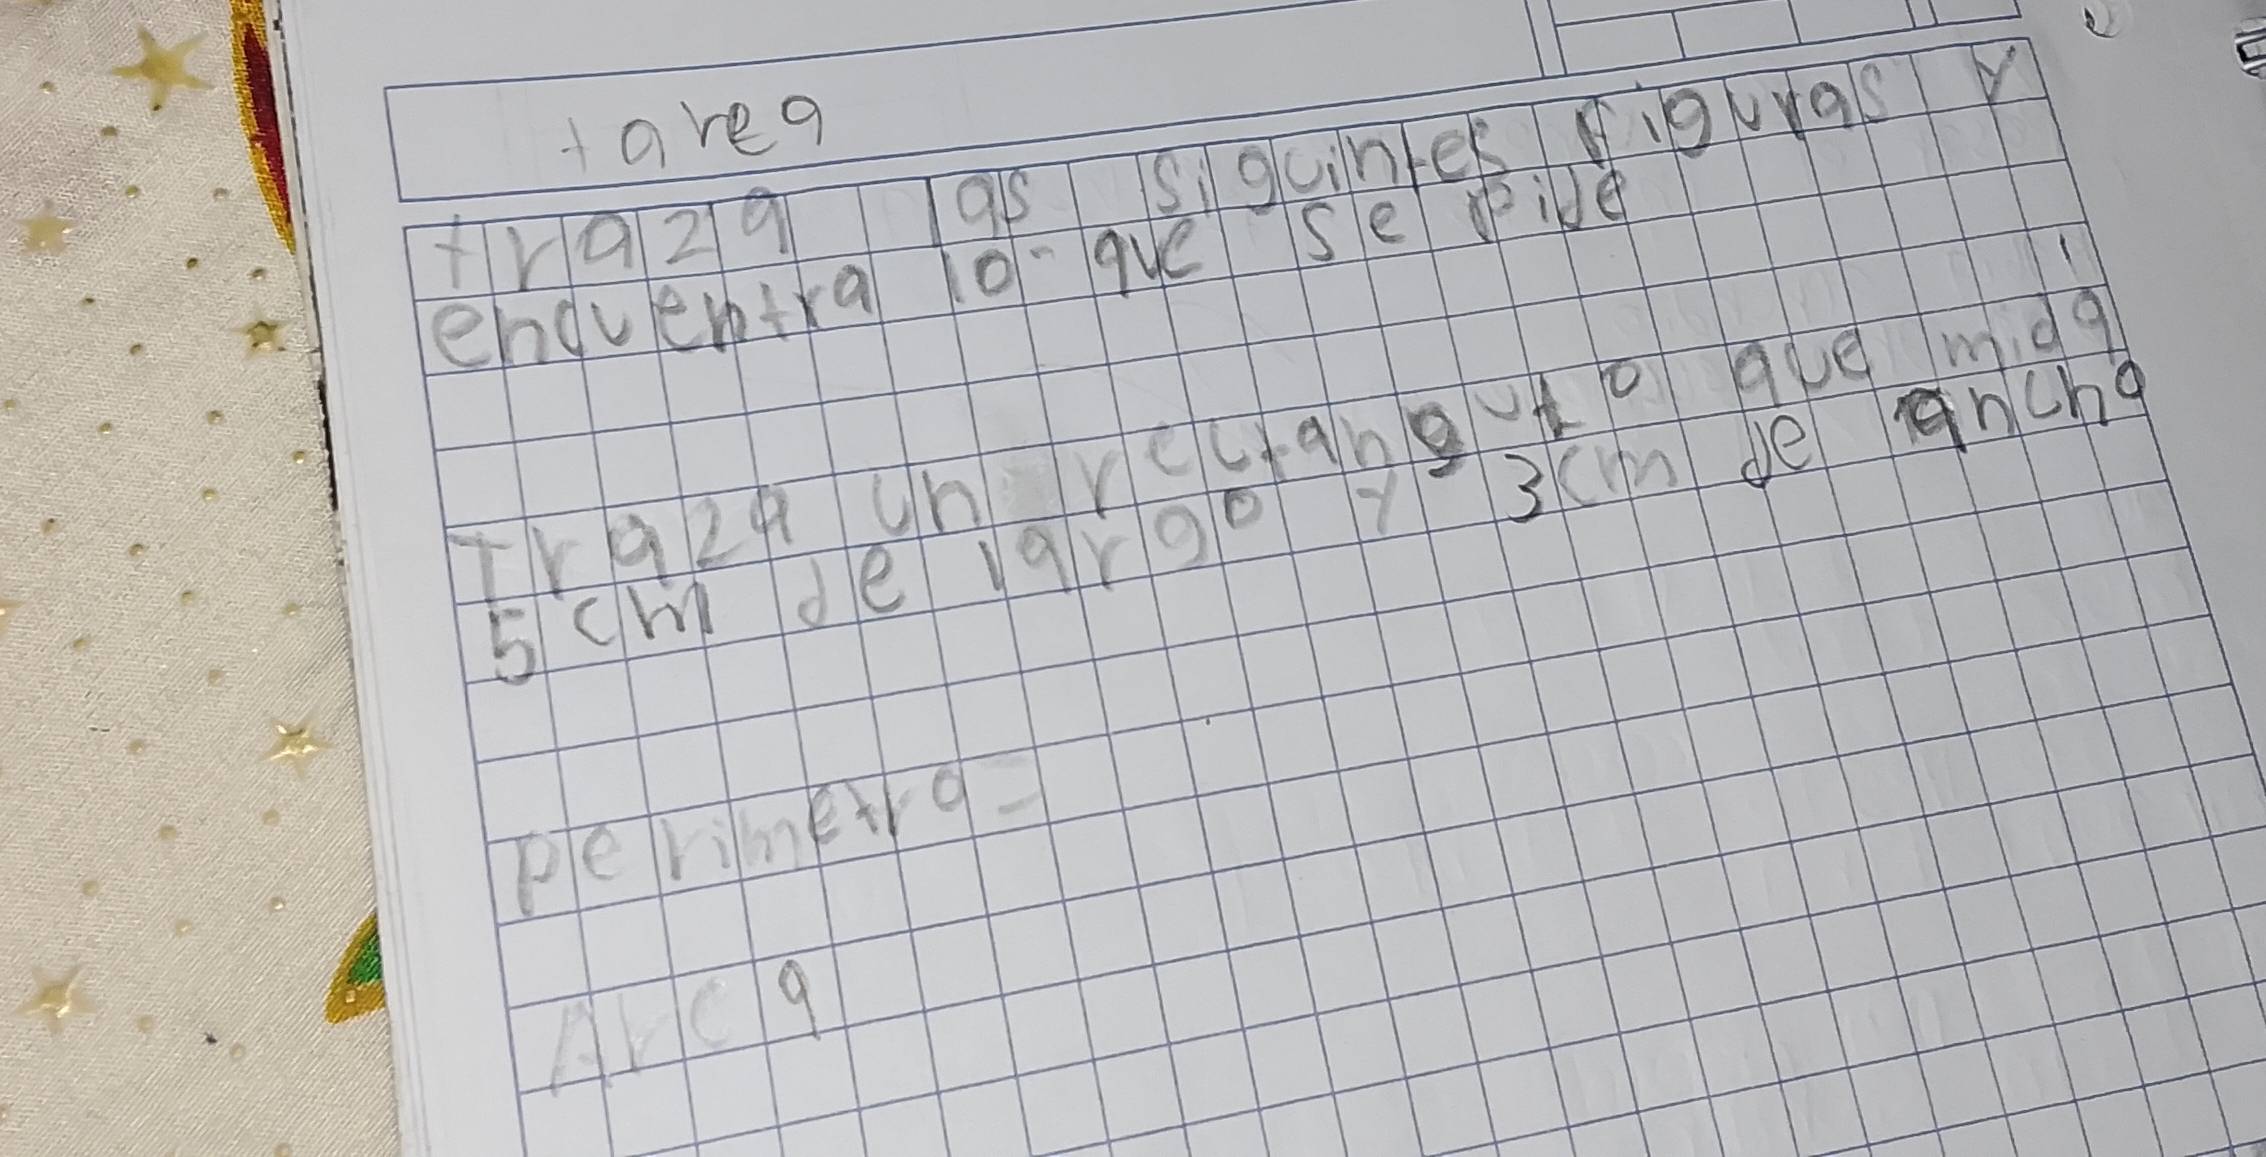 tarea
traza las siguintes figuras y
encuentra lo que se pide
Traza un rectangulo que mida
5 cm de largo y 3 cm de ancho
perimetro=
Area